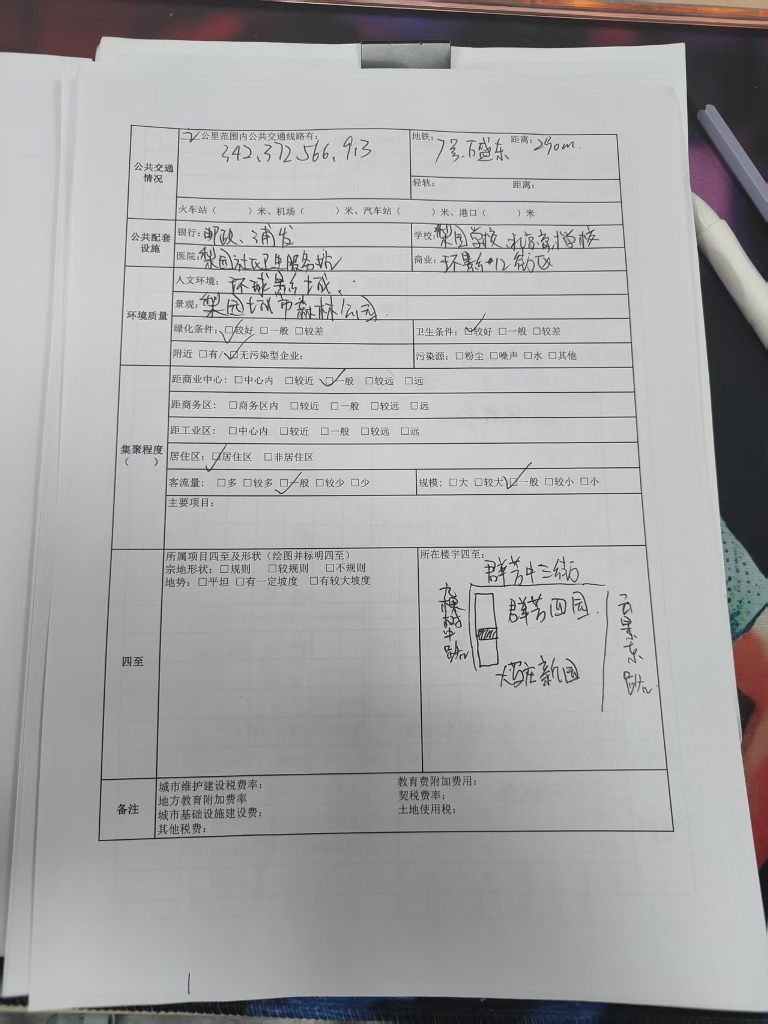 公共交通情况
二公里范围内公共交通线路有:
342、372、566、913
地铁: 7号.万盛东 距离: 290m.
轻轨: 距离:
火车站( )米、机场( )米、汽车站( )米、港口( )米
公共配套设施
银行: 邮政、浦发
学校: 梨园学校、北京
医院: 梨园社区卫生服务站
商业: 环景 #12街区
环境质量
人文环境: 环球影城、
景观: 梨园城市森林公园.
绿化条件: ☑较好 □一般 □较差
卫生条件: ☑较好 □一般 □较差
附近 □有/☑无污染型企业:
污染源: □粉尘 □噪声 □水 □其他
集聚程度
( )
距商业中心: □中心内 □较近 ☑一般 □较远 □远
距商务区: □商务区内 □较近 □一般 □较远 □远
距工业区: □中心内 □较近 □一般 □较远 □远
居住区: ☑居住区 □非居住区
客流量: □多 □较多 ☑一般 □较少 □少
规模: □大 □较大 ☑一般 □较小 □小
主要项目:
四至
所属项目四至及形状(绘图并标明四至)
宗地形状: □规则 □较规则 □不规则
地势: □平坦 □有一定坡度 □有较大坡度
所在楼宇四至:
群芳中三街
九棵树中路
群芳四园.
云景东路.
大马庄新园
备注
城市维护建设税费率:
教育费附加费用:
地方教育附加费率
契税费率:
城市基础设施建设费:
土地使用税:
其他税费: